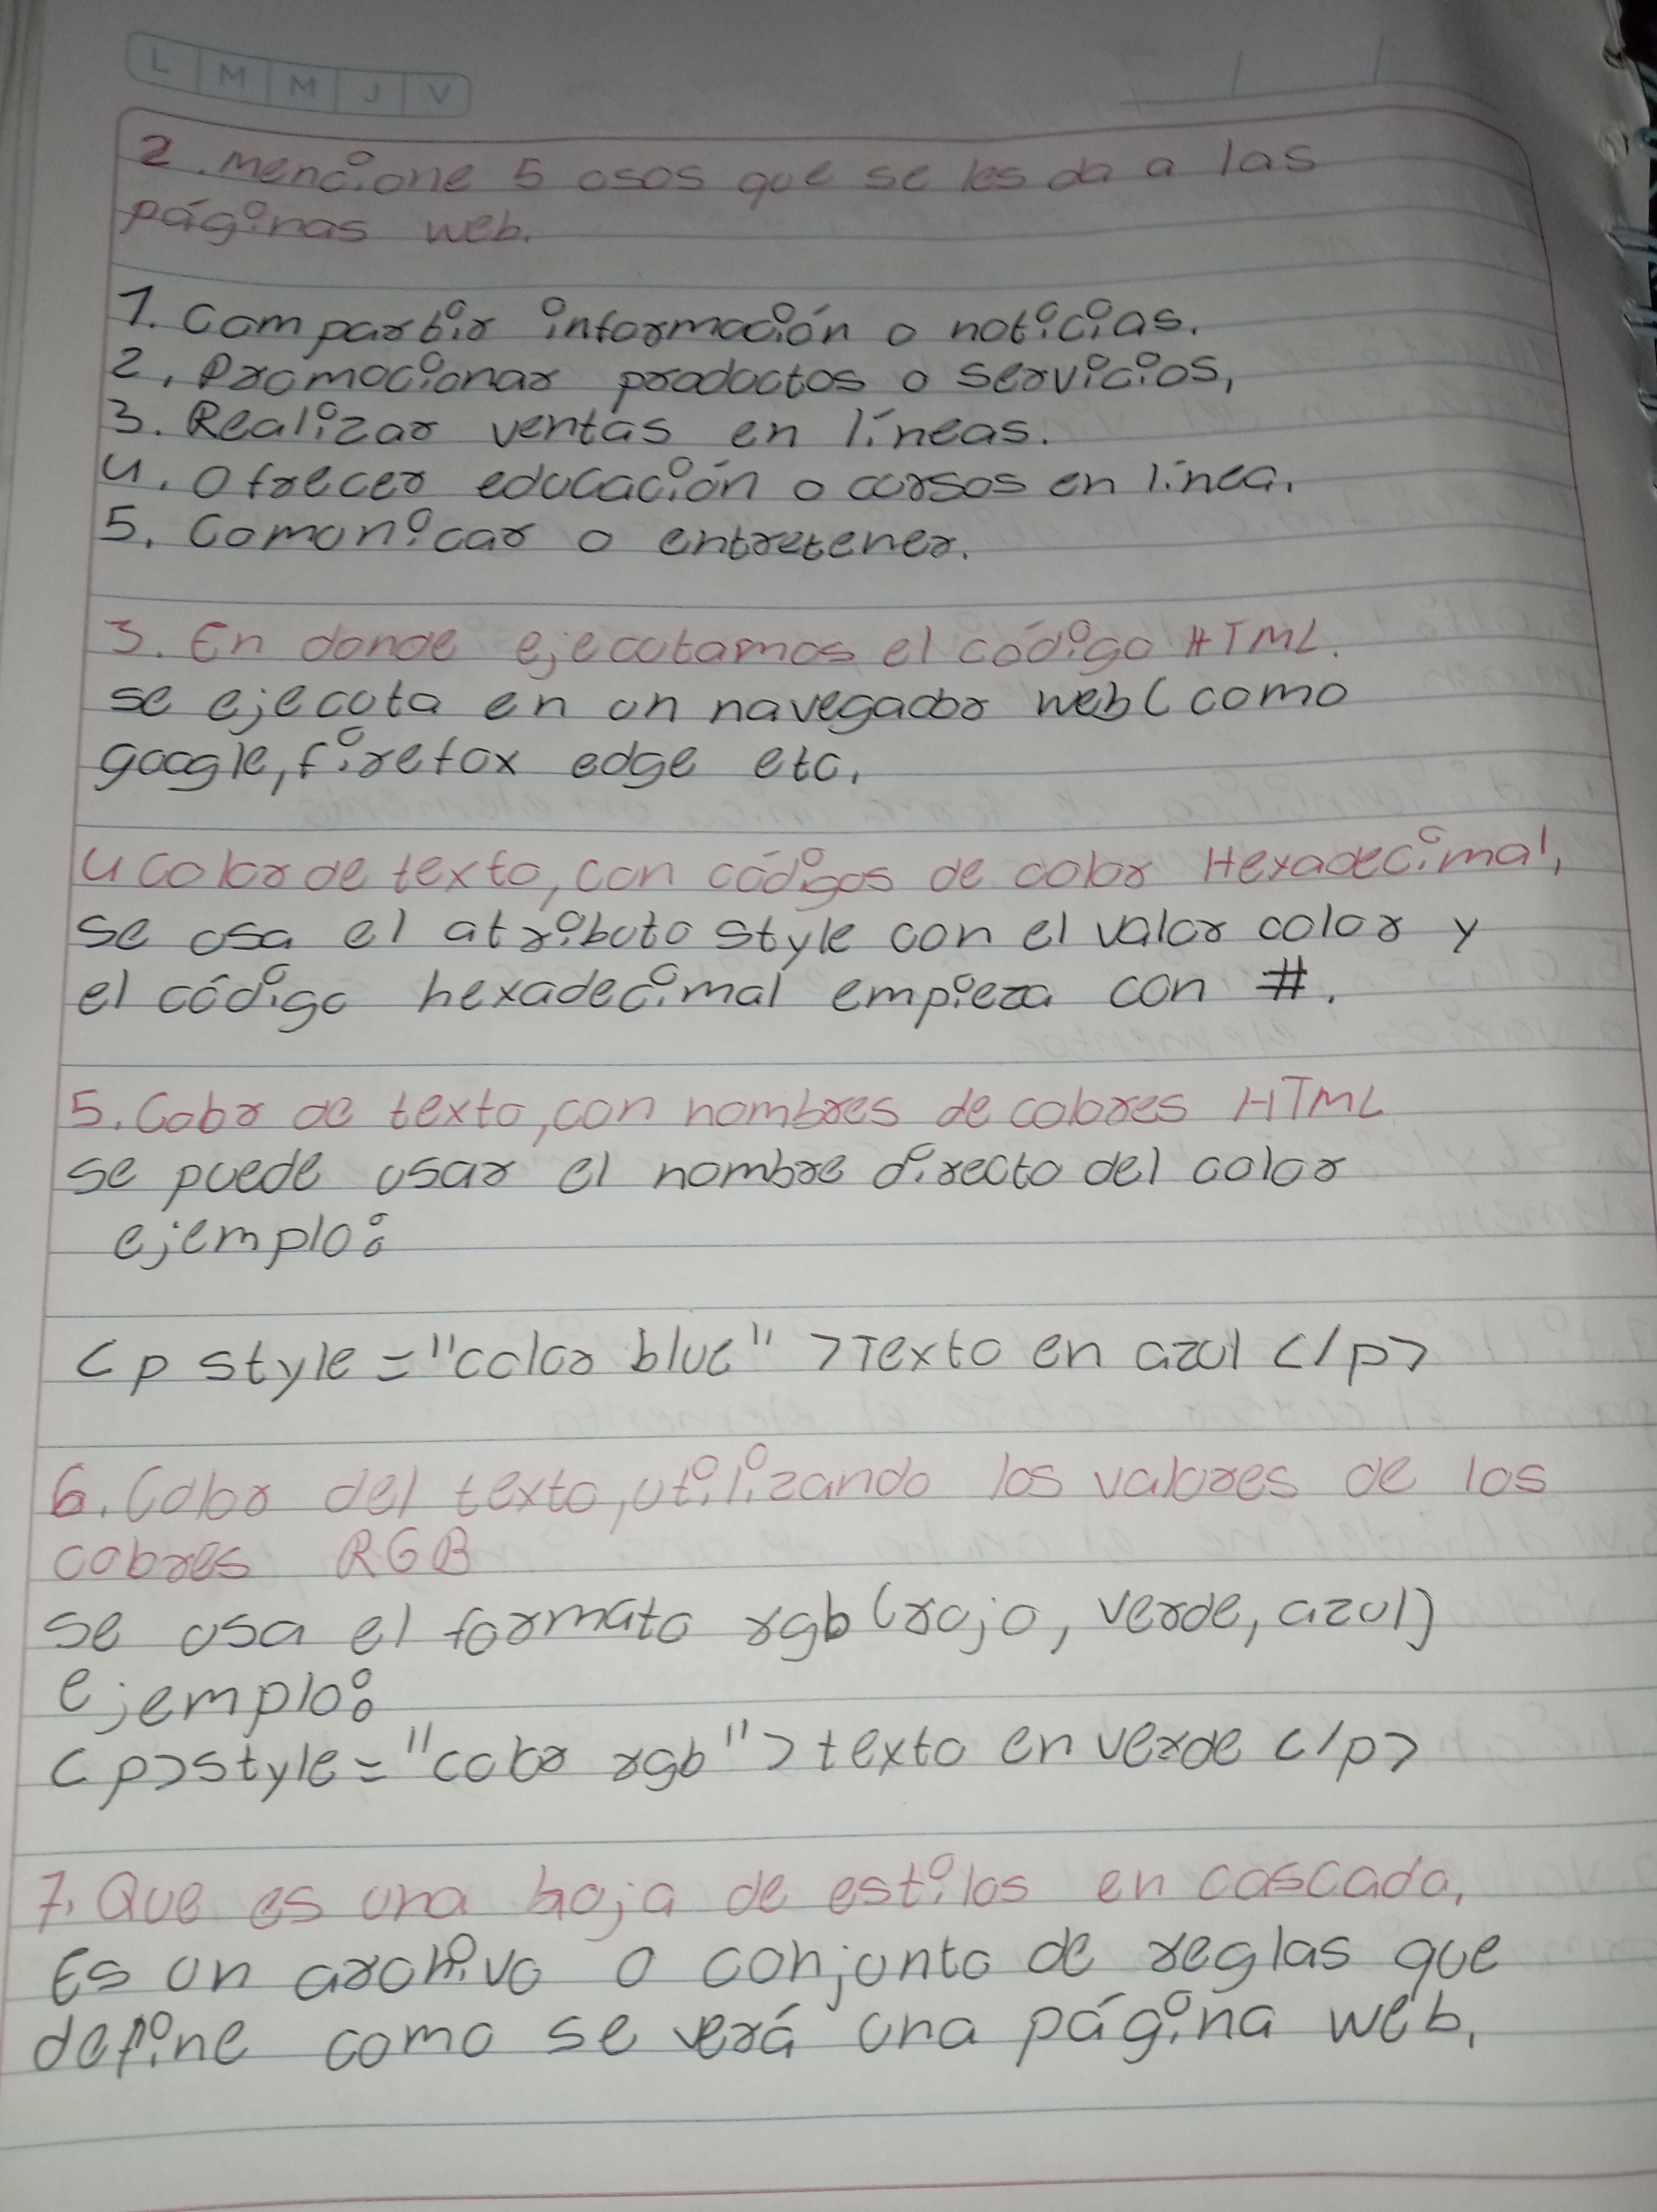 L M M J V
2. Mencione 5 usos que se les da a las
páginas web.
1. Compartir información o noticias.
2. Promocionar productos o servicios,
3. Realizar ventas en líneas.
4. Ofrecer educación o cursos en línea.
5. Comunicar o entretener.
3. En donde ejecutamos el código HTML.
se ejecuta en un navegador web (como
google, firefox edge etc.
4 Color de texto, con códigos de color Hexadecimal,
se usa el atributo style con el valor color y
el código hexadecimal empieza con #.
5. Color de texto, con nombres de colores HTML
se puede usar el nombre directo del color
ejemplo:
<p style="color blue" >Texto en azul </p>
6. Color del texto, utilizando los valores de los
colores RGB
se usa el formato rgb (rojo, verde, azul)
ejemplo:
<p>style="color rgb">texto en verde </p>
7. Que es una hoja de estilos en cascada,
Es un archivo o conjunto de reglas que
define como se verá una página web,